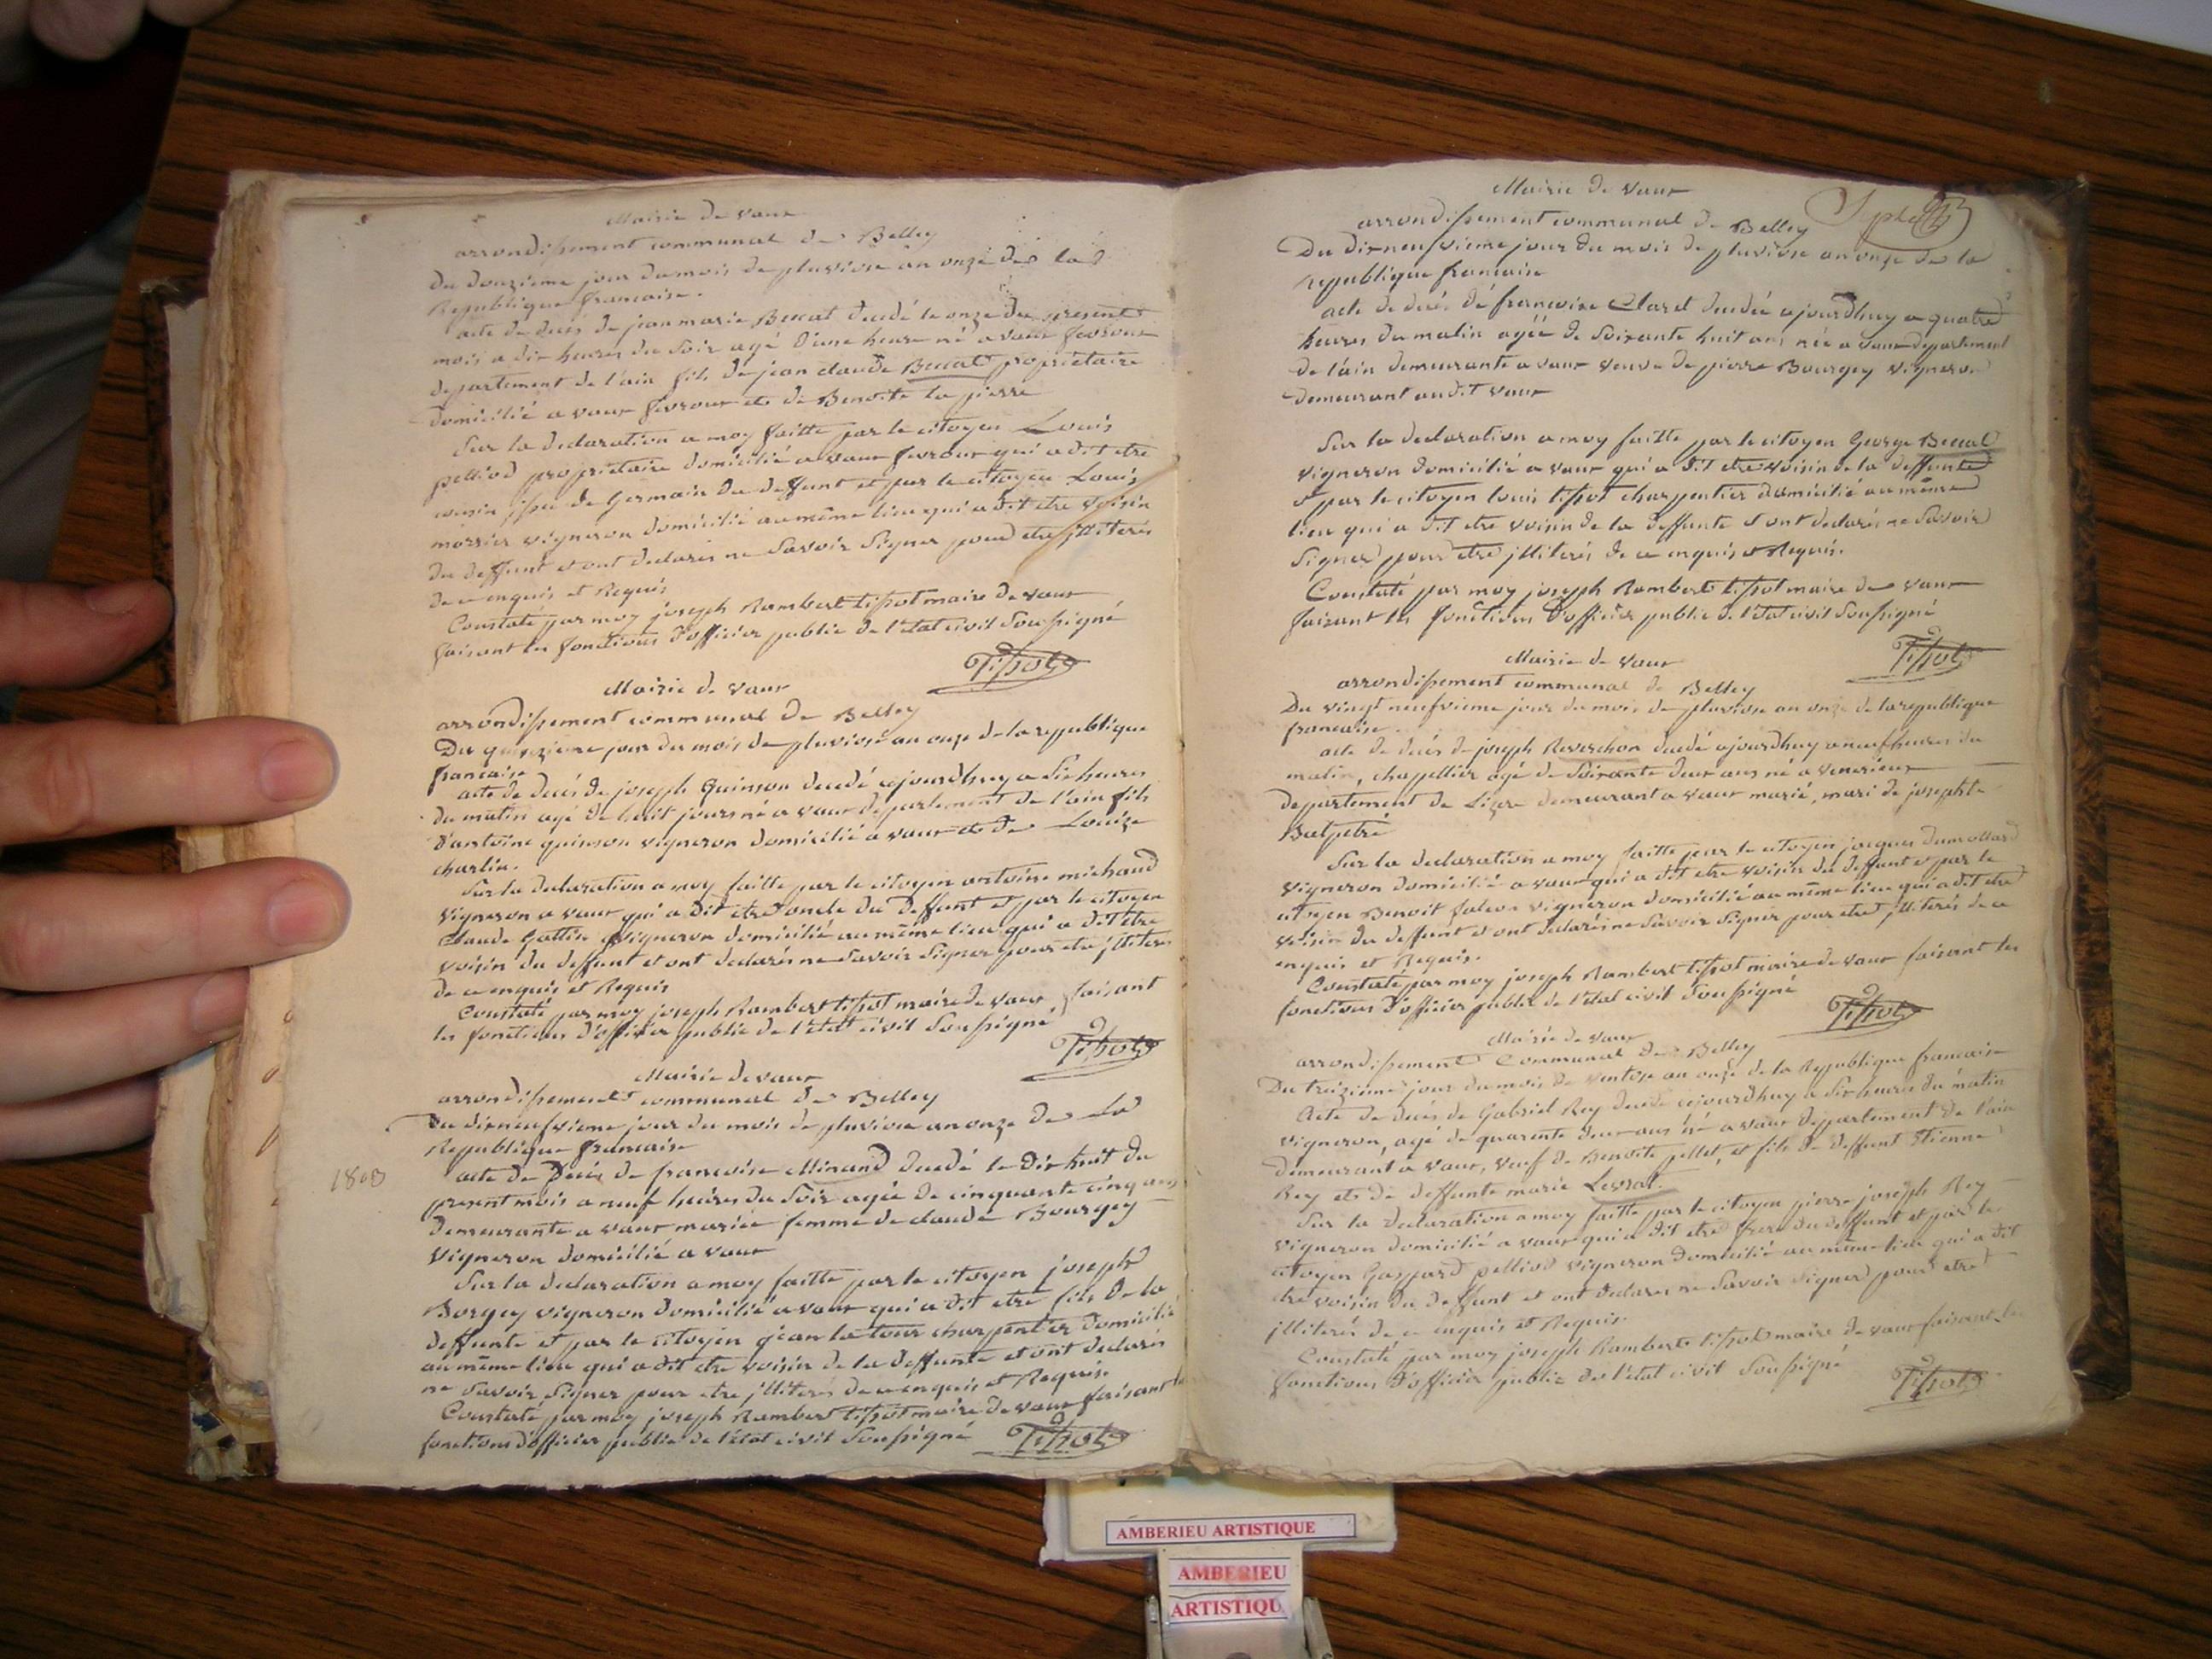 Mairie de vaux
arrondissement communal de Belley
du douzieme jour du mois de pluviose an onze de la
Republique francaise.
acte de decés de jean marie Beccat decedé le onze du present
mois a dix heures du soir agé d'une heure né a vaux fevroux
departement de l'ain fils de jean claude Beccat propriétaire
domicilié a vaux fevroux et de Benoite la pierre
Sur la declaration a moy faitte par le citoyen Louis
pelliod propriétaire domicilié a vaux fevroux qui a dit etre
cousin issu de Germain du deffunt et par le citoyen Louis
morrier vigneron domicilié au même lieu qui a dit etre voisin
du deffunt et ont declarés ne Savoir Signer pour etre jlliterés
de ce enquis et Requis
Constaté par moy joseph Rambert tissot maire de vaux
faisant les fonctions d'officier public de l'état civil Soussigné
Tissot
Mairie de vaux
arrondissement communal de Belley
Du quinzieme jour du mois de pluviose an onze de la republique
francaise
acte de decés de joseph Quinson decedé ajourdhuy a Six heures
du matin agé de huit jours né a vaux departement de l'ain fils
d'antoine quinson vigneron domicilié a vaux et de Louize
charlin.
Sur la declaration a moy faitte par le citoyen antoine michaud
vigneron a vaux qui a dit etre oncle du deffunt et par le citoyen
Claude Gottin vigneron domicilié au même lieu qui a dit etre
voisin du deffunt et ont declarés ne Savoir Signer pour etre jlliteres
de ce enquis et Requis
Constaté par moy joseph Rambert tissot maire de vaux faisant
les fonctions d'officier public de l'état civil Soussigné
Tissot
Mairie de vaux
arrondissement communal de Belley
Du dixneufvieme jour du mois de pluviose an onze de la
Republique francaise
1803
acte de Decés de francoise Minand decedé le dix huit du
present mois a neuf heures du Soir agée de cinquante cinq ans
demeurante a vaux mariée femme de claude Bourgey
vigneron domicilié a vaux
Sur la declaration a moy faitte par le citoyen joseph
Borgey vigneron domicilié a vaux qui a dit etre fils de la
deffunte et par le citoyen jean la tour charpentier domicilié
au même lieu qui a dit etre voisin de la deffunte et ont declarés
ne Savoir Signer pour etre jlliterés de ce enquis et Requis.
Constaté par moy joseph Rambert tissot maire de vaux faisant les
fonctions d'officier public de l'état civil Soussigné
Tissot
Mairie de vaux
arrondissement communal de Belley
Du dixneufvieme jour du mois de pluviose an onze de la
republique francaise
acte de decés de francoise Claret decedée ajourdhuy a quatre
heures du matin agéé de Soixante huit ans née a vaux departement
de l'ain demeurante a vaux veuve de pierre Bourgey vigneron
demeurant audit vaux
Sur la declaration a moy faitte par le citoyen George Beccat
vigneron domicilié a vaux qui a dit etre voisin de la deffunte
et par le citoyen louis tissot charpentier domicilié au même
lieu qui a dit etre voisin de la deffunte et ont declarés ne Savoir
Signer pour etre jlliterés de ce enquis et Requis.
Constaté par moy joseph Rambert tissot maire de vaux
faisant les fonctions d'officier public de l'état civil Soussigné
Tissot
Mairie de vaux
arrondissement communal de Belley
Du vingt neufvieme jour du mois de pluviose an onze de la republique
francaise.
acte de decés de joseph Reverchon decedé ajourdhuy a neuf heures du
matin, chapellier agé de Soixante deux ans né a venerieux
departement de Lizere demeurant a vaux marié, mari de josephte
Sur la declaration a moy faitte par le citoyen jacques dumollard
vigneron domicilié a vaux qui a dit etre voisin du deffunt et par le
citoyen Benoit falcoz vigneron domicilié au même lieu qui a dit etre
voisin du deffunt et ont declarés ne Savoir Signer pour etre jlliterés de ce
enquis et Requis.
Constaté par moy joseph Rambert tissot maire de vaux faisant les
fonctions d'officier public de l'état civil Soussigné
Tissot
Mairie de vaux
arrondissement Communal de Belley
Du treizieme jour du mois de ventose an onze de la Republique francaise
Acte de decés de Gabriel Rey decedé ajourdhuy a dix heures du matin
vigneron, agé de quarente deux ans né a vaux departement de l'ain
demeurant a vaux, veuf de Benoite pellet, et fils de deffunt Etienne
Rey et de deffunte marie Levrat.
Sur la declaration a moy faitte par le citoyen pierre joseph Rey
vigneron domicilié a vaux qui a dit etre frere du deffunt et par le
citoyen Gaspard pelliod vigneron domicilié au même lieu qui a dit
etre voisin du deffunt et ont declarés ne Savoir Signer pour etre
jlliterés de ce enquis et Requis.
Constaté par moy joseph Rambert tissot maire de vaux faisant les
fonctions d'officier public de l'état civil Soussigné
Tissot
AMBERIEU ARTISTIQUE
AMBERIEU
ARTISTIQU